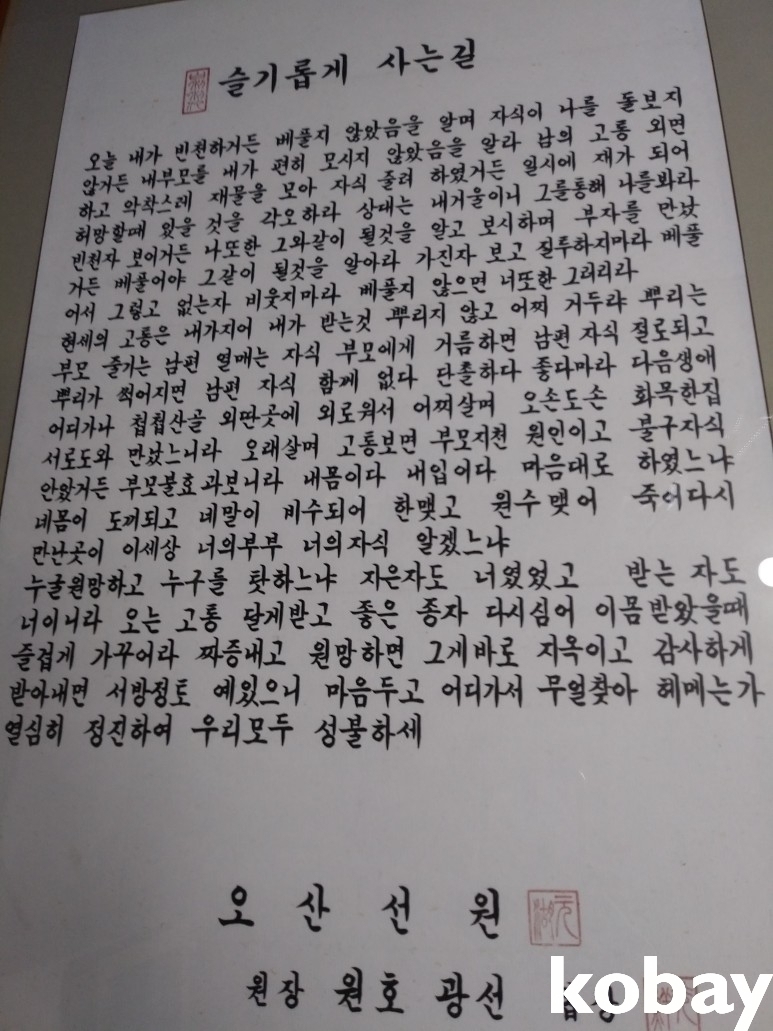 슬기롭게 사는길
오늘 내가 빈천하거든 베풀지 않았음을 알며 자식이 나를 돌보지
않거든 내부모를 내가 편히 모시지 않았음을 알라 남의 고통 외면
하고 악착스레 재물을 모아 자식 줄려 하였거든 일시에 재가 되어
허망할때 왔을 것을 각오하라 상대는 내거울이니 그를통해 나를봐라
빈천자 보이거든 나또한 그와같이 될것을 알고 보시하며 부자를 만났
거든 베풀어야 그같이 될것을 알아라 가진자 보고 질투하지마라 베풀
어서 그렇고 없는자 비웃지마라 베풀지 않으면 너또한 그러리라
현세의 고통은 내가지어 내가 받는것 뿌리지 않고 어찌 거두랴 뿌리는
부모 줄기는 남편 열매는 자식 부모에게 거름하면 남편 자식 절로되고
뿌리가 썩어지면 남편 자식 함께 없다 단촐하다 좋다마라 다음생애
어디가나 첩첩산골 외딴곳에 외로워서 어찌살며 오손도손 화목한집
서로도와 만났느니라 오래살며 고통보면 부모지천 원인이고 불구자식
안왔거든 부모불효과보니라 내몸이다 내입이다 마음대로 하였느냐
네몸이 도끼되고 네말이 비수되어 한맺고 원수맺어 죽어다시
만난곳이 이세상 너의부부 너의자식 알겠느냐
누굴원망하고 누구를 탓하느냐 지은자도 너였었고 받는자도
너이니라 오는 고통 달게받고 좋은 종자 다시심어 이몸받았을때
즐겁게 가꾸어라 짜증내고 원망하면 그게바로 지옥이고 감사하게
받아내면 서방정토 예있으니 마음두고 어디가서 무얼찾아 헤메는가
열심히 정진하여 우리모두 성불하세
오산선원
원장 원호 광선
kobay